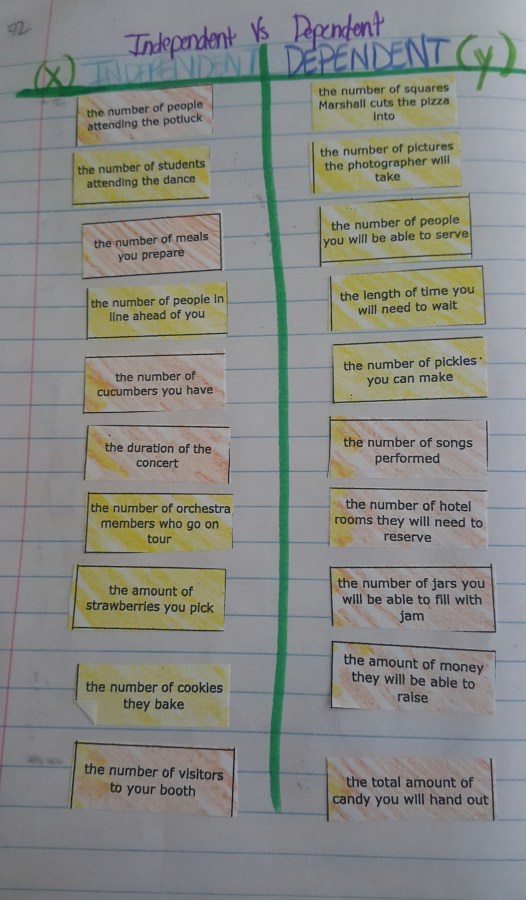 92
Independent Vs Dependent
(x) INDEPENDENT
DEPENDENT (y)
the number of people
attending the potluck
the number of squares
Marshall cuts the pizza
into
the number of students
attending the dance
the number of pictures
the photographer will
take
the number of meals
you prepare
the number of people
you will be able to serve
the number of people in
line ahead of you
the length of time you
will need to wait
the number of
cucumbers you have
the number of pickles
you can make
the duration of the
concert
the number of songs
performed
the number of orchestra
members who go on
tour
the number of hotel
rooms they will need to
reserve
the amount of
strawberries you pick
the number of jars you
will be able to fill with
jam
the number of cookies
they bake
the amount of money
they will be able to
raise
the number of visitors
to your booth
the total amount of
candy you will hand out